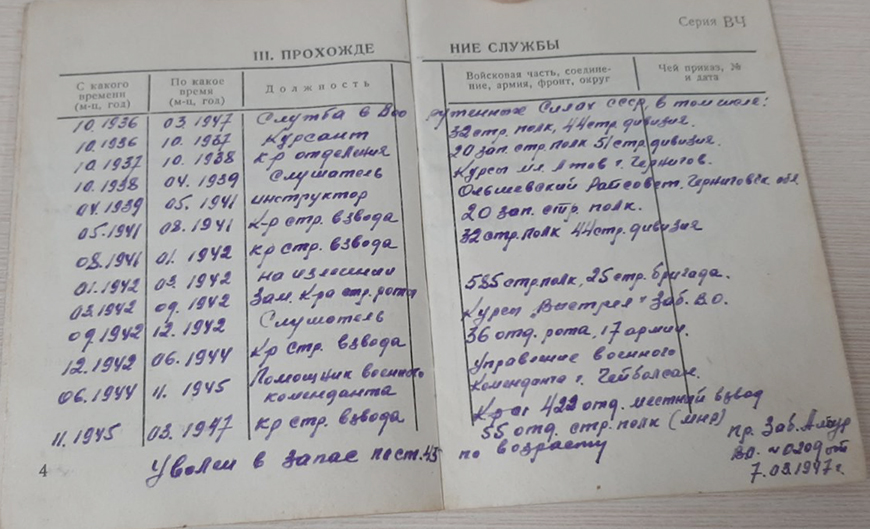 Серия ВЧ
III. ПРОХОЖДЕ НИЕ СЛУЖБЫ
С какого времени (м-ц, год) По какое время (м-ц, год) Должность Войсковая часть, соедине-ние, армия, фронт, округ Чей приказ, № и дата
10.1936 03.1947 Служба в Воо руженных Силах СССР, в том числе:
10.1936 10.1937 Курсант 32 стр. полк, 44 стр. дивизия.
10.1937 10.1938 к-р отделения 20 зап. стр. полк 51 стр. дивизия.
10.1938 04.1939 Слушатель Курсы мл. г. Чернигов.
04.1939 05.1941 инструктор Ольшевский Райсовет. Черниговск обл.
05.1941 08.1941 к-р стр. взвода 20 зап. стр. полк.
08.1941 01.1942 к-р стр. взвода 32 стр. полк 44 стр. дивизия
01.1942 03.1942 на излечении
03.1942 09.1942 Зам. к-ра стр. рота 585 стр. полк, 25 стр. бригада.
09.1942 12.1942 Слушатель Курсы "Выстрел" Заб. В.О.
12.1942 06.1944 к-р стр. взвода 36 отд. рота, 17 армии.
06.1944 11.1945 Помощник военного коменданта Управление военного
коменданта г. Чойбалсан.
11.1945 03.1947 к-р стр. взвода 422 отд. местный взвод
55 отд. стр. полк (МНР)
Уволен в запас по ст. 43 по возрасту
Пр. Заб. Амур
ВО. № 0209 от
7.03.1947 г.
4